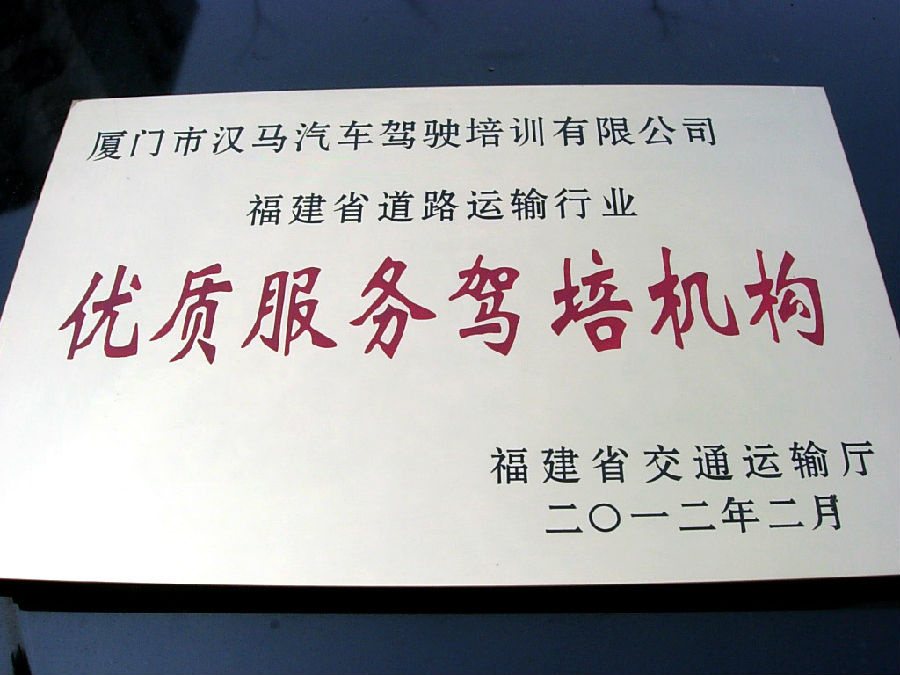 厦门市汉马汽车驾驶培训有限公司
福建省道路运输行业
优质服务驾培机构
福建省交通运输厅
二〇一二年二月